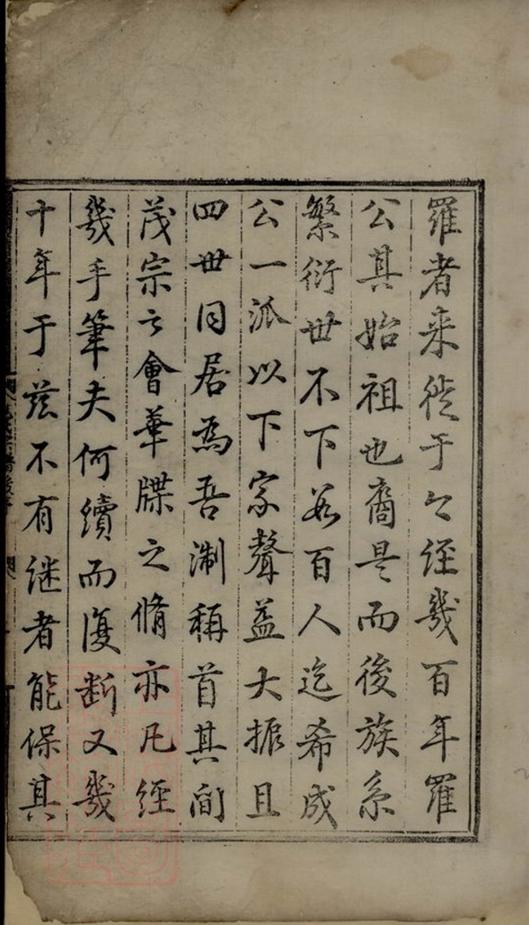 羅者来徙于今經幾百年羅
公其始祖也裔是而後族系
繁衍世不下数百人迄希成
公一派以下家聲益大振且
四世同居為吾淛稱首其間
茂宗云會華牒之脩亦凡經
幾手筆夫何續而復断又幾
十年于兹不有继者能保其